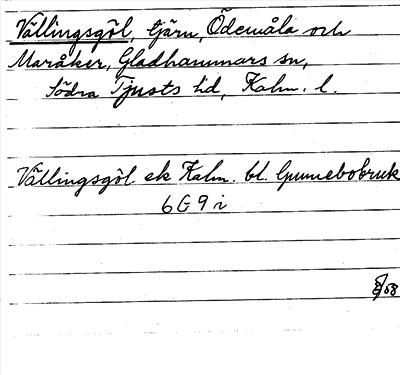 Vällingsgöl, tjärn, Ödemåla och
Maråker, Gladhammars sn,
Södra Tjusts hd, Kalm. l.
Vällingsgöl ek Kalm. bl. Gunnebobruk
6 G 9 i